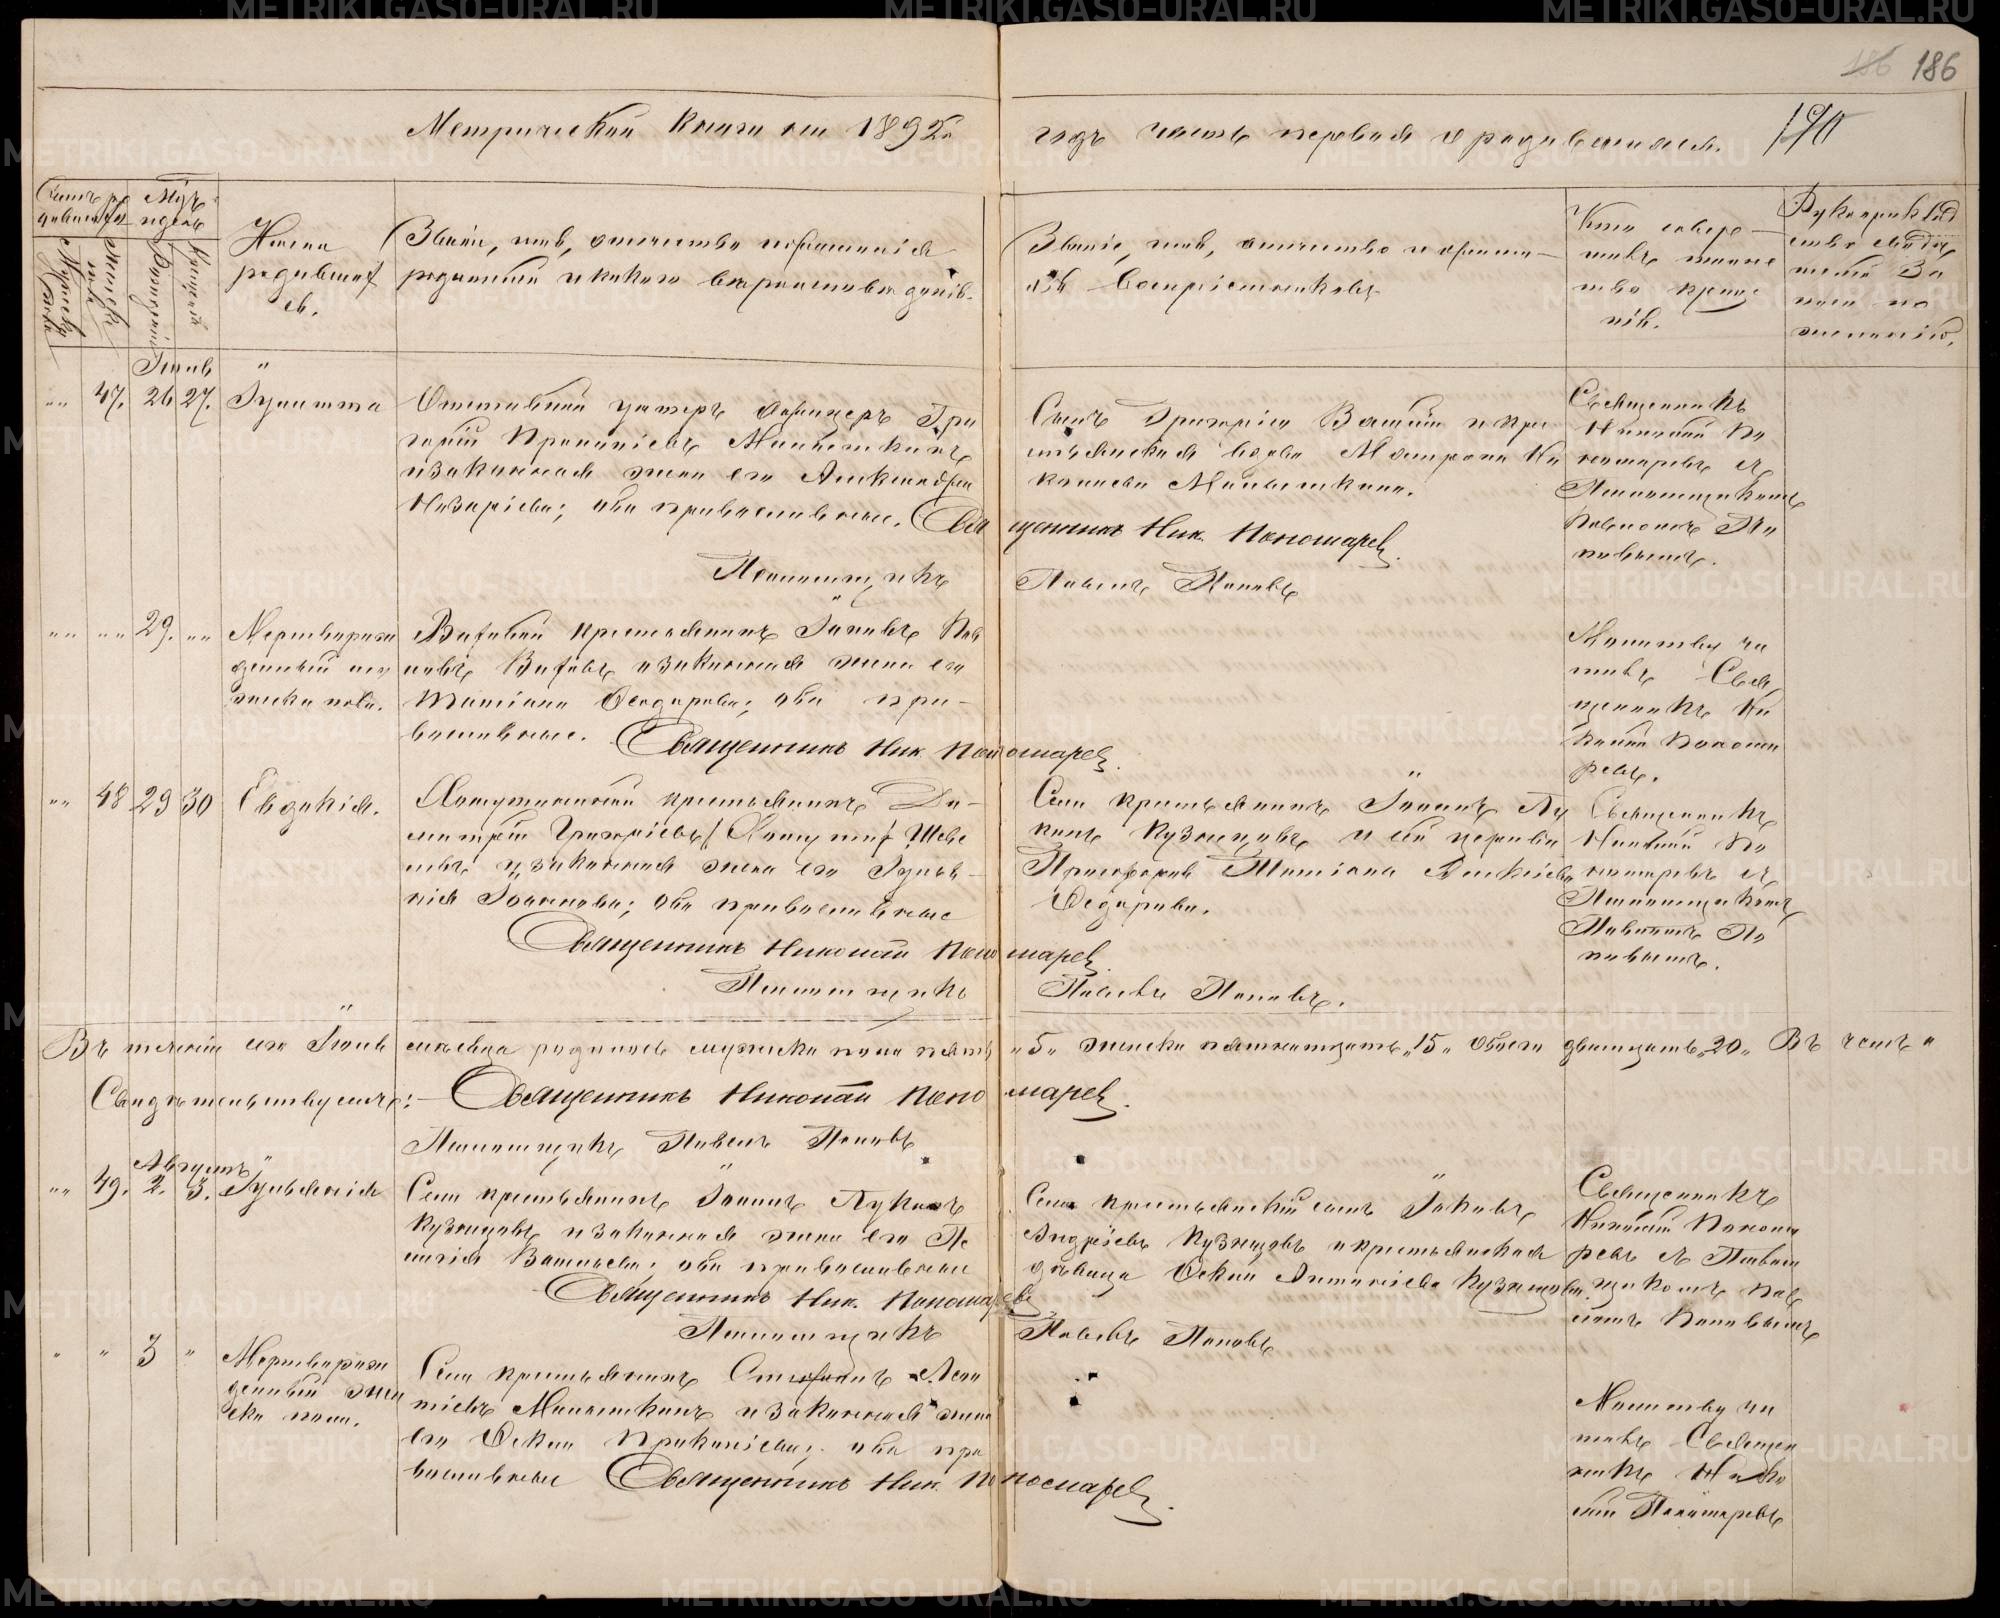 186
Метрической книги на 1892й
годъ часть первая о родившихся.
Счетъ ро
дившихся
Мужеска
Женска
Мѣсяцъ
и день
Рожденія
Крещенія
Имена
родившихся
ся.
Званіе, имя, отчество и фамилія
родителей и какого вѣроисповѣданія.
Званіе, имя, отчество и фами-
лія воспріемниковъ
Кто совер-
шалъ таин
ство креще
нія.
Рукоприклад
ство свидѣ
телей за
писи по
желанію.
Іюль
47. 26 27. Іулитта
Отставной унтеръ офицеръ Гри
горій Прокопіевъ
и законная жена его Александра
Назаріева; оба православные. Свя
щенникъ Ник. Пономаревъ.
Псаломщикъ
Павелъ Поповъ
Сынъ Григорія Василій и кре
стьянская вдова Матрона Ни
колаева
Священникъ
Николай По
номаревъ съ
Псаломщикомъ
Павломъ По
повымъ.
29. Мертворож
денный му
жеска пола.
крестьянинъ Іаковъ
и законная жена его
Татіана Ѳеодорова; оба пра-
вославные. Священникъ Ник. Пономаревъ.
Молитву чи
талъ Свя
щенникъ Ни
колай Понома
ревъ.
48 29 30 Евдокія.
крестьянинъ Ди-
митрій Григоріевъ
и законная жена его Іуліа-
нія Іоаннова; оба православные
Священникъ Николай Пономаревъ
Псаломщикъ
Павелъ Поповъ.
Села крестьянинъ Іоаннъ Лу
кинъ Кузнецовъ и сей церкви
Просфорня Татіана Алексіева
Ѳедорова.
Священникъ
Николай По
номаревъ съ
Псаломщикомъ
Павломъ По
повымъ.
Въ теченіи сего Іюля мѣсяца родилось мужеска пола пять „5„ женска пятнатцать „15„ обоего дватцать „20„ Въ чемъ и
Свидѣтельствуемъ:- Священникъ Николай Пономаревъ.
Псаломщикъ Павелъ Поповъ
Августъ
49. 2. 3. Іуліанія
Села крестьянинъ Іоаннъ Лукинъ
Кузнецовъ и законная жена его Пе
лагія Васильева; оба православные
Священникъ Ник. Пономаревъ
Псаломщикъ
Павелъ Поповъ
Села крестьянскій сынъ Іаковъ
Андреевъ Кузнецовъ и крестьянская
дѣвица Ѳекла Антоніева Кузнецова.
Священникъ
Николай Понома
ревъ съ Псалом
щикомъ Пав
ломъ Поповымъ
3 Мертворож
денный жен
ска пола.
Села крестьянинъ Стефанъ
и законная жена
его Ѳекла Прокопіева; оба пра
вославные Священникъ Ник. Пономаревъ.
Молитву чи
талъ Священ
никъ Нико
лай Пономаревъ